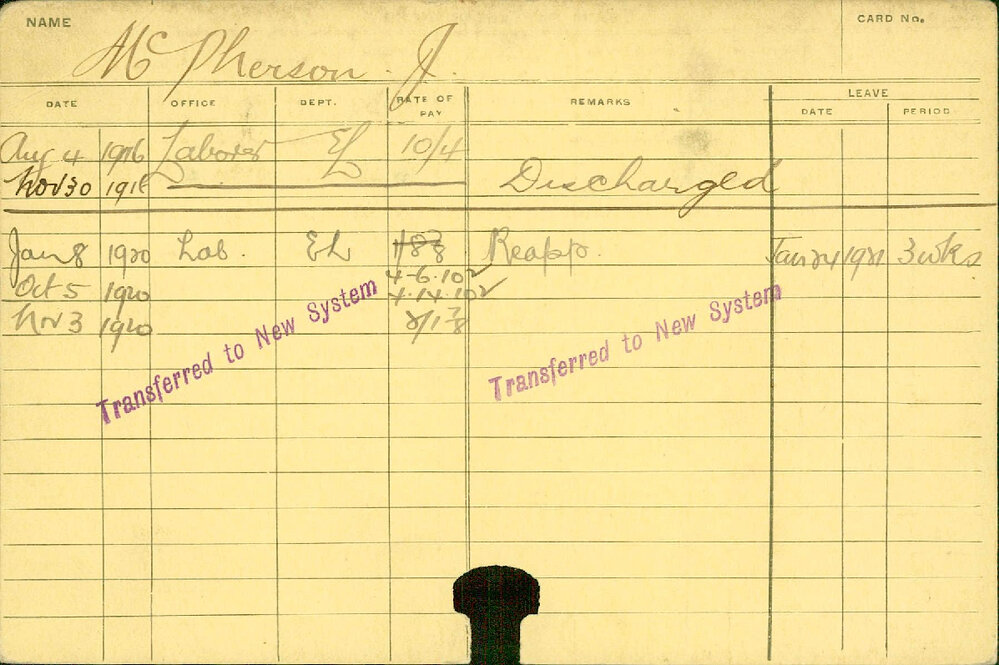 NAME CARD No.
McPherson. J.
DATE OFFICE DEPT. RATE OF PAY REMARKS LEAVE
DATE PERIOD
Aug 4 1916 Laborer EL 10/4
Nov 30 1916 Discharged
Jan 8 1920 Lab. EL Reapp. Jan 24 1921 3 wks
Oct 5 1920
Nov 3 1920
Transferred to New System
Transferred to New System